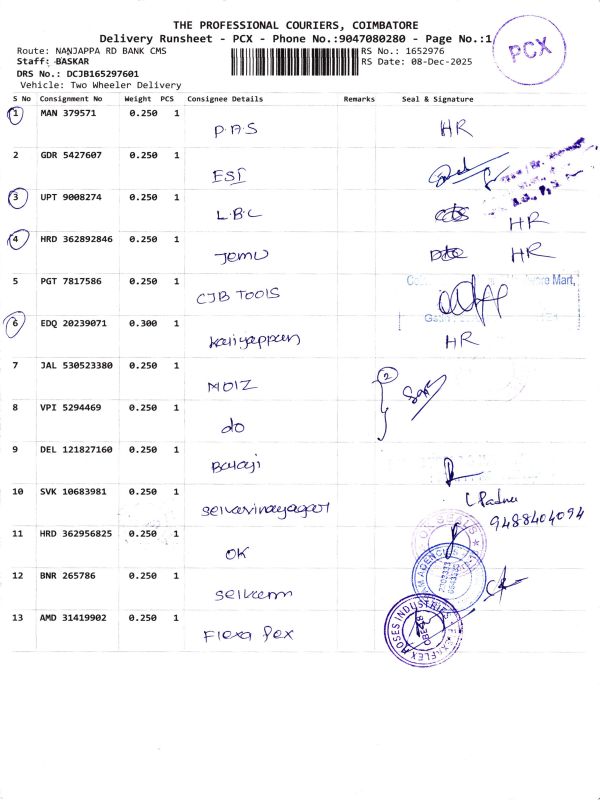 THE PROFESSIONAL COURIERS, COIMBATORE
Delivery Runsheet - PCX - Phone No.:9047080280 - Page No.:1
PCX
Route: NANJAPPA RD BANK CMS
RS No.: 1652976
Staff: BASKAR
RS Date: 08-Dec-2025
DRS No.: DCJB165297601
Vehicle: Two Wheeler Delivery
S No Consignment No Weight PCS Consignee Details Remarks Seal & Signature
1 MAN 379571 0.250 1
P.A.S HR
2 GDR 5427607 0.250 1
ESI
3 UPT 9008274 0.250 1
L.B.C HR
4 HRD 362892846 0.250 1
Jemu HR
5 PGT 7817586 0.250 1
CJB TOOLS
Mart,
6 EDQ 20239071 0.300 1
Kariyappan HR
7 JAL 530523380 0.250 1
MOIZ 2
8 VPI 5294469 0.250 1
do
9 DEL 121827160 0.250 1
Balaji
10 SVK 10683981 0.250 1
selvavinayagar
9488404094
11 HRD 362956825 0.250 1
OK
12 BNR 265786 0.250 1
AGENCIES
13 AMD 31419902 0.250 1
Flexa Pex
ROSES INDUSTRIES